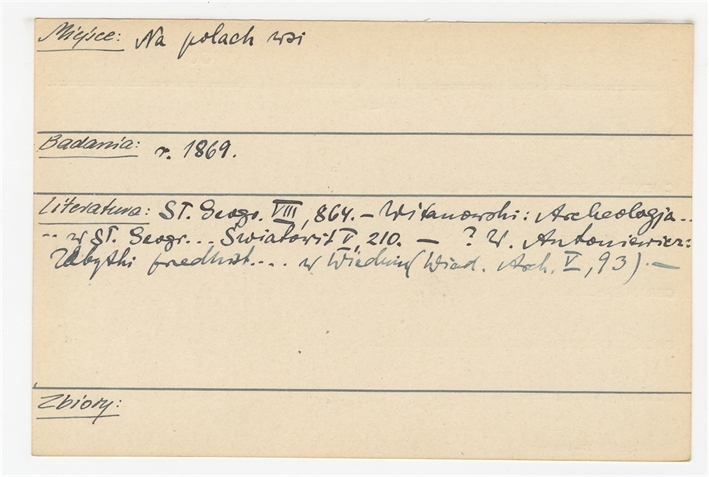 Miejsce: Na polach wsi
Badania: r. 1869.
Literatura: Sł. Geogr. VIII, 864. – Witanowski: Archeologja..
.. w Sł. Geogr... Światowit V, 210. – ? W. Antoniewicz:
Zabytki przedhist.... w Wiedniu (Wiad. Arch. V, 93). –
Zbiory: